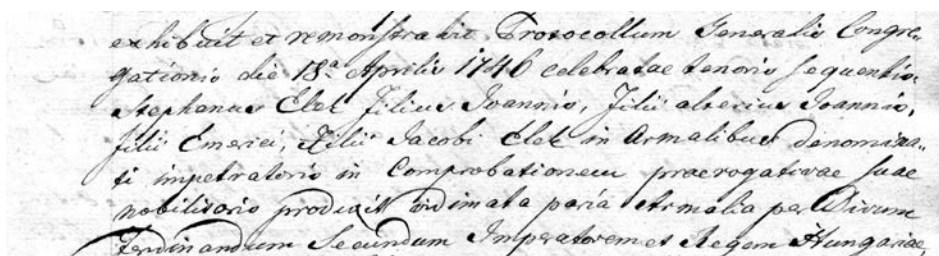 exhibuit et remonstravit Protocollum Generalis Congre-
gationis die 18ª Aprilis 1746 celebratae tenoris sequentis.
Stephanus Elek Filius Joannis, Filii alterius Joannis,
Filii Emerici, Filii Jacobi Elek in Armalibus denomina-
ti impetratoris in Comprobationem praerogativae suae
nobilitaris produxit vidimata paria Armalia per Divum
Ferdinandum Secundum Imperatorem et Regem Hungariae,